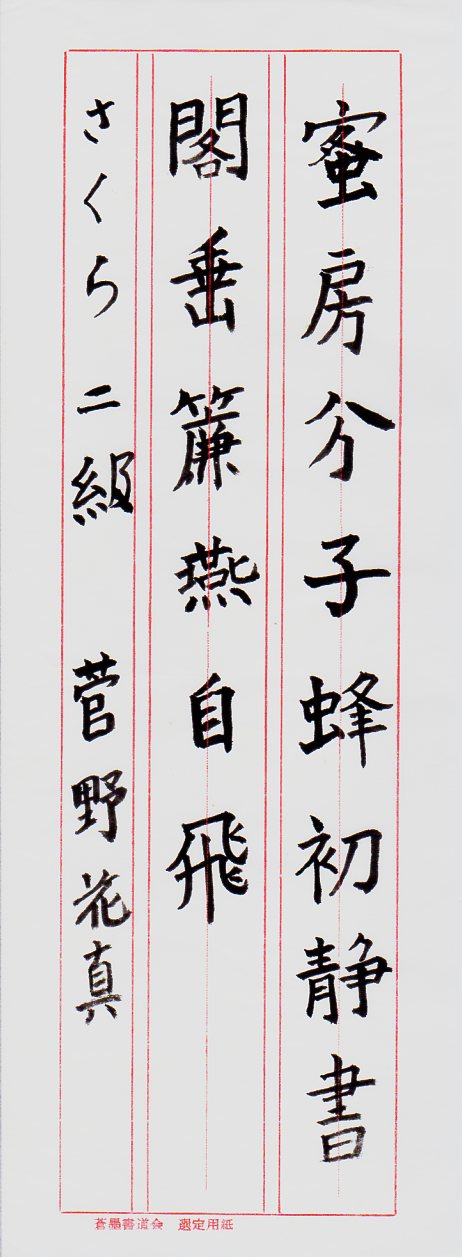 蜜房分子蜂初静書
閣垂簾燕自飛
さくら 二級 菅野花真
蒼墨書道会 選定用紙